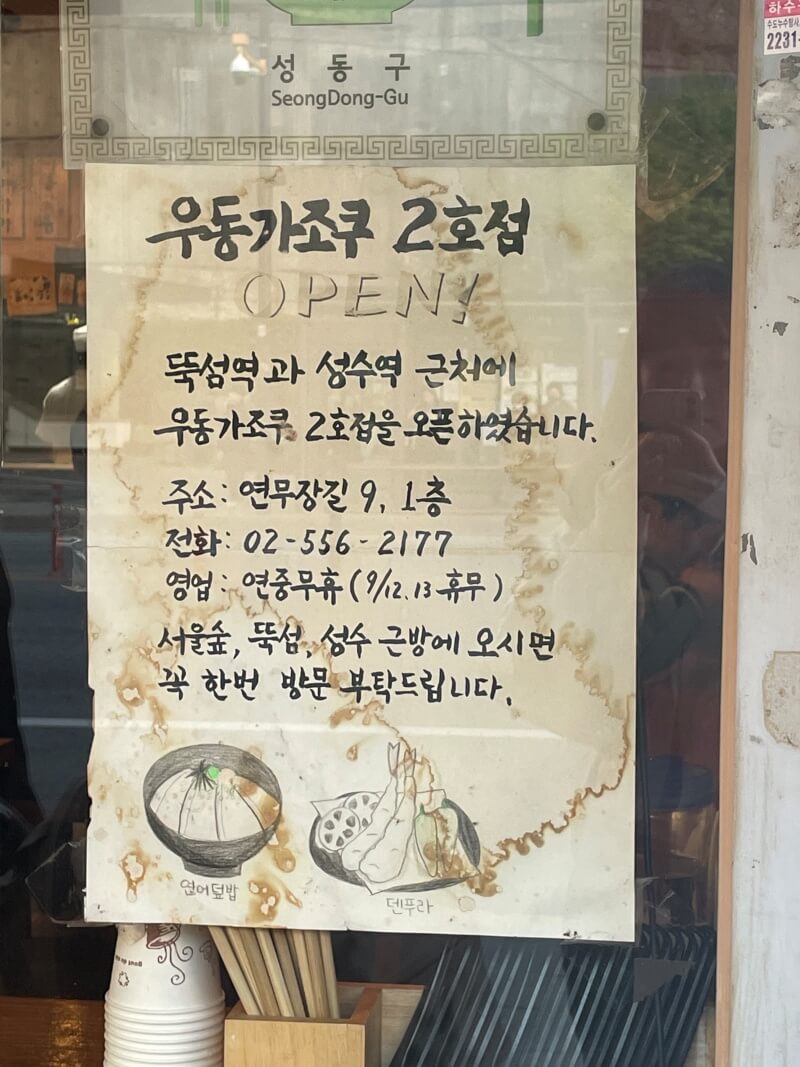 성동구
SeongDong-Gu
하수
2231-
우동가조쿠 2호점
OPEN!
뚝섬역과 성수역 근처에
우동가조쿠 2호점을 오픈하였습니다.
주소: 연무장길 9, 1층
전화: 02-556-2177
영업: 연중무휴 (9/12.13 휴무)
서울숲, 뚝섬, 성수 근방에 오시면
꼭 한번 방문 부탁드립니다.
연어덮밥
덴푸라